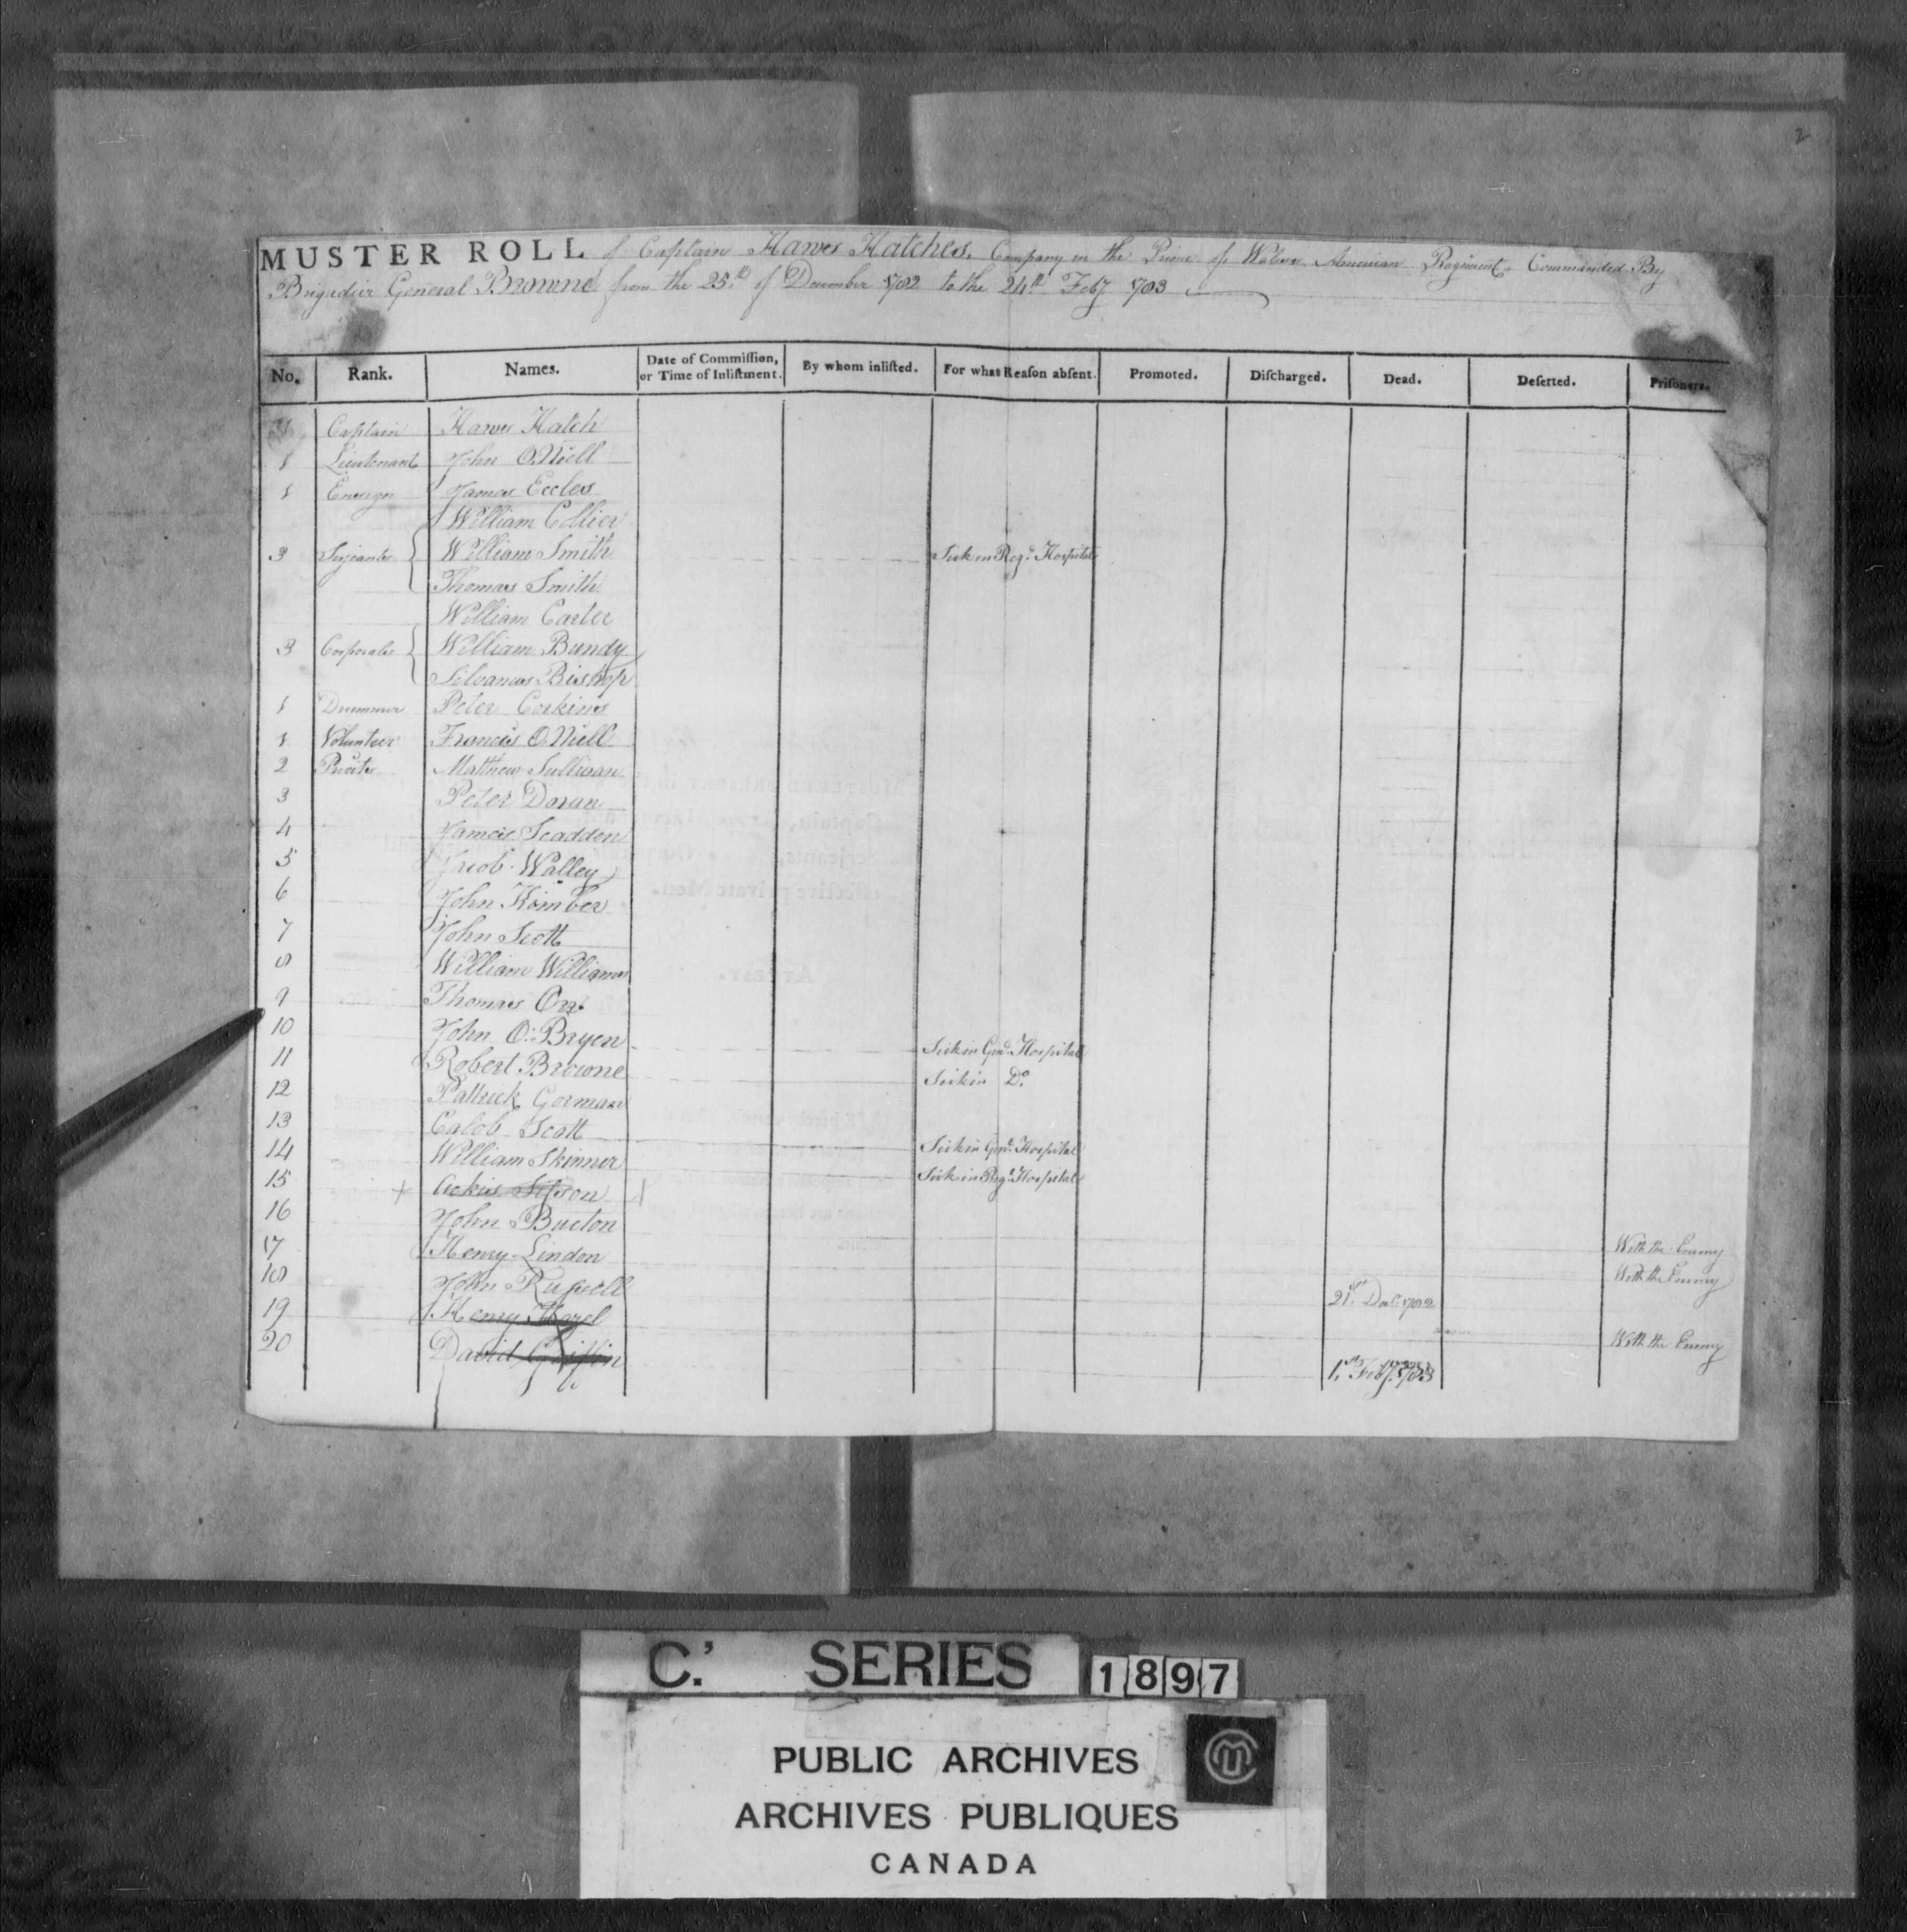 2
MUSTER ROLL of Captain Hawes Hatches. Company in the Prince of Wales American Regiment Commanded By
Brigadier General Browne from the 25th of December 1782 to the 24th Feby 1783
No. Rank. Names. Date of Commiſſion, or Time of Inliſtment. By whom inliſted. For what Reaſon abſent. Promoted. Diſcharged. Dead. Deſerted. Priſoners.
1 Captain Hawes Hatch
1 Lieutenant John O.Niell
1 Ensign James Eccles
William Collier
3 Serjeants William Smith Sick in Regt. Hospital
Thomas Smith
William Carter
3 Corporals William Bundy
Silvanus Bishop
1 Drummer Peter Corkins
1 Volunteer Francis O.Niell
2 Private Matthew Sullivan
3 Peter Doran
4 James Scadden
5 Jacob Walley
6 John Kimber
7 John Scott
8 William Williams
9 Thomas Orr
10 John O.Bryen Sick in Genl. Hospital
11 Robert Browne Sick in Do.
12 Patrick Gorman
13 Caleb Scott Sick in Genl. Hospital
14 William Skinner Sick in Regt. Hospital
15
16 John Burton With the Enemy
17 Henry Lindon With the Enemy
18 John Rupell 21st. Decr. 1782
19 Henry Hazel With the Enemy
20 David Griffin 1st. Feby. 1783
C.' SERIES 1897
PUBLIC ARCHIVES
ARCHIVES PUBLIQUES
CANADA